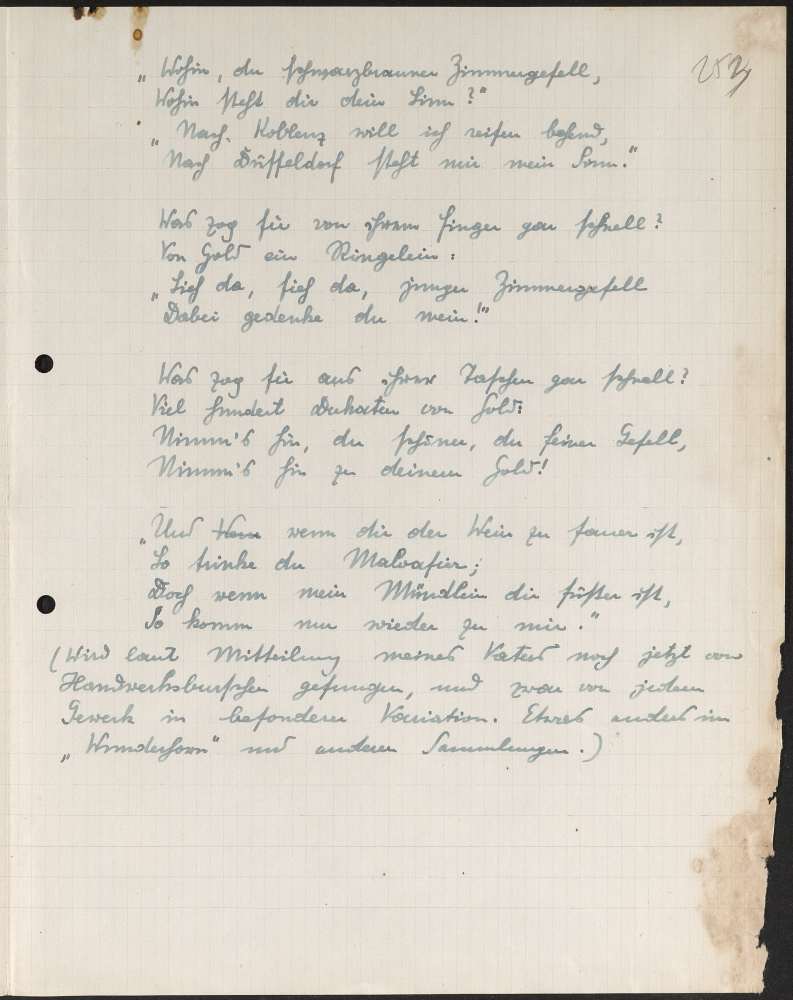 252
„Wohin, du schwarzbrauner Zimmergesell,
Wohin steht dir dein Sinn?“
„Nach Koblenz will ich reisen behend,
Nach Düsseldorf steht mir mein Sinn.“
Was zog sie von ihrem Finger gar schnell?
Von Gold ein Ringelein:
„Sieh da, sieh da, junger Zimmergesell
Dabei gedenke du mein!“
Was zog sie aus ihrer Taschen gar schnell?
Viel hundert Dukaten von Gold:
Nimm's hin, du schöner, du feiner Gesell,
Nimm's hin zu deinem Gold!
„Und wenn dir der Wein zu sauer ist,
So trinke du Malvasier;
Doch wenn mein Mündlein dir süßer ist,
So komm nur wieder zu mir.“
(Wird laut Mitteilung meines Vaters noch jetzt von
Handwerksburschen gesungen, und zwar von jedem
Gewerk in besonderer Variation. Etwas anders im
„Wunderhorn“ und anderen Sammlungen.)